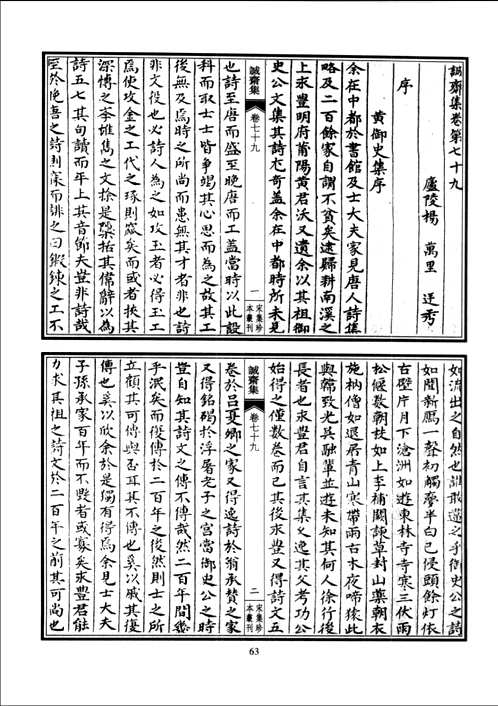 誠齋集卷第七十九
廬陵楊 萬里 廷秀
序
黃御史集序
余在中都於書館及士大夫家見唐人詩集
略及二百餘家自謂不貧矣逮歸耕南溪之
上永豐明府莆陽黃君沃又遺余以其祖御
史公文集其詩尤奇蓋余在中都時所未見
誠齋集 卷七十九 一 宋集珍本叢刊
也詩至唐而盛至晚唐而工蓋當時以此設
科而取士士皆爭竭其心思而為之故其工
後無及焉時之所尚而患無其才者非也詩
非文役也必詩人為之如攻玉者必得玉工
焉使攻金之工代之琢則窳矣而或者挾其
深博之學雄雋之文於是檃括其偉辭以為
詩五七其句讀而平上其音節夫豈非詩哉
至於晚唐之詩則寱而誹之曰鍛鍊之工不
如流出之自然也誰敢違之乎御史公之詩
如聞新鴈一聲初觸夢半白已侵頭餘燈依
古壁片月下滄洲如遊東林寺寺寒三伏雨
松偃數朝枝如上李補闕諫草封山藥朝衣
施衲僧如退居青山寒帶雨古木夜啼猿此
與韓致光吳融輩並遊未知其何人徐行後
長者也永豐君自言其集久逸其父考功公
始得之僅數卷而已其後永豐又得詩文五
誠齋集 卷七十九 二 宋集珍本叢刊
卷於呂夏卿之家又得逸詩於翁承贊之家
又得銘碣於浮屠老子之宮當御史公之時
豈自知其詩文之傳不傳哉然二百年間幾
乎泯矣而復傳於二百年之後然則士之所
立顧其可傳與否耳其不傳也奚以戚其復
傳也奚以欣余於是獨有得焉余見士大夫
子孫承家百年而不毀者或寡矣永豐君能
力求其祖之詩文於二百年之前其可尚也
63